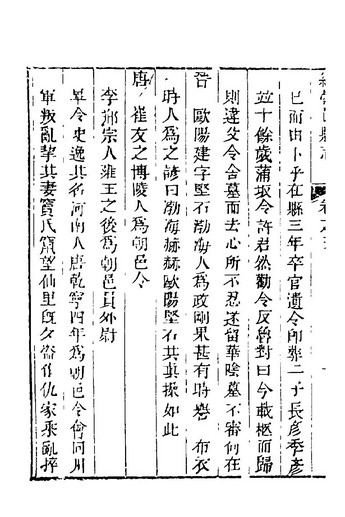 已而由卜乎在縣三年卒官遺令卽葬二子長彥季彥
並十餘歲蒲坂令許君然勸令反魯對曰今載柩而歸
則違父令舍墓而去心所不忍遂留華陰墓不審何在
晉 歐陽建字堅石渤海人爲政剛果甚有時譽 布衣
時人爲之諺曰渤海赫赫歐陽堅石其真操如此
唐 崔友之博陵人爲朝邑令
李 宗人雍王之後爲朝邑員外尉
畢令史逸其名河南人唐乾寧四年爲朝邑令會同州
軍叛亂挈其妻竇氏 望仙里旣夕 仇家乘亂捽